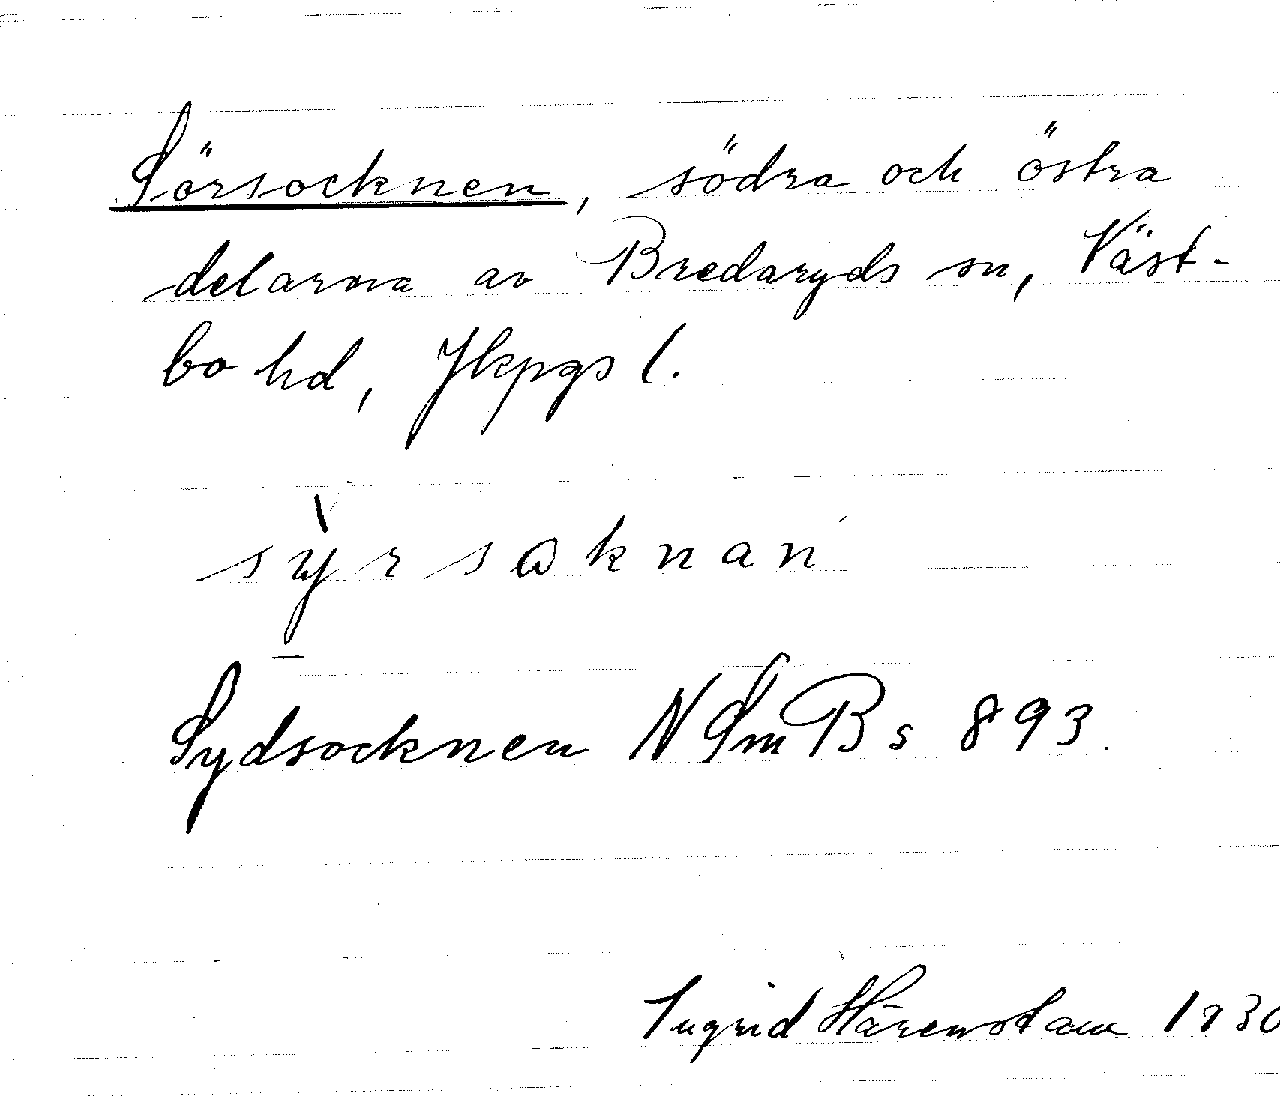 Sörsocknen, södra och östra
delarna av Bredaryds sn, Väst-
bo hd, Jkpgs l.
sỳrsɷknan
Sydsocknen NSmB s 893.
Ingrid Härenstam 1930